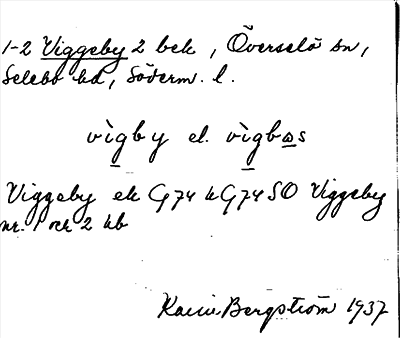 1-2 Viggeby 2 bek, Överselö sn,
Selebo hd, Söderm. l.
vìgby el. vìgbɷs
Viggeby ek G74 k G74 SO Viggeby
nr. 1 och 2 hb
Karin Bergström 1937